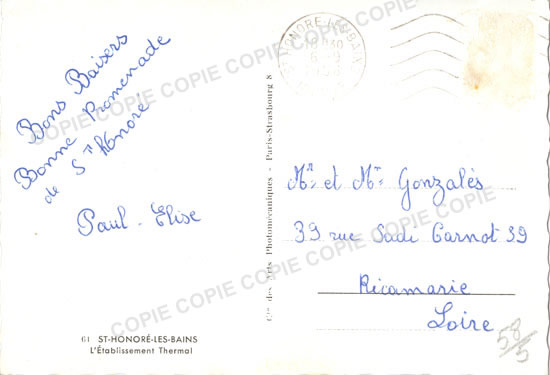 Bons Baisers
Bonne Promenade
de St Honoré
Paul - Elise
61 ST-HONORÉ-LES-BAINS
L'Établissement Thermal
Cie des Arts Photomécaniques - Paris-Strasbourg 8
ST-HONORÉ-LES-BAINS
Mr et Me Gonzalès
39 rue Sadi Carnot 39
Ricamarie
Loire
58/5
COPIE COPIE COPIE COPIE COPIE COPIE
COPIE COPIE COPIE COPIE COPIE COPIE